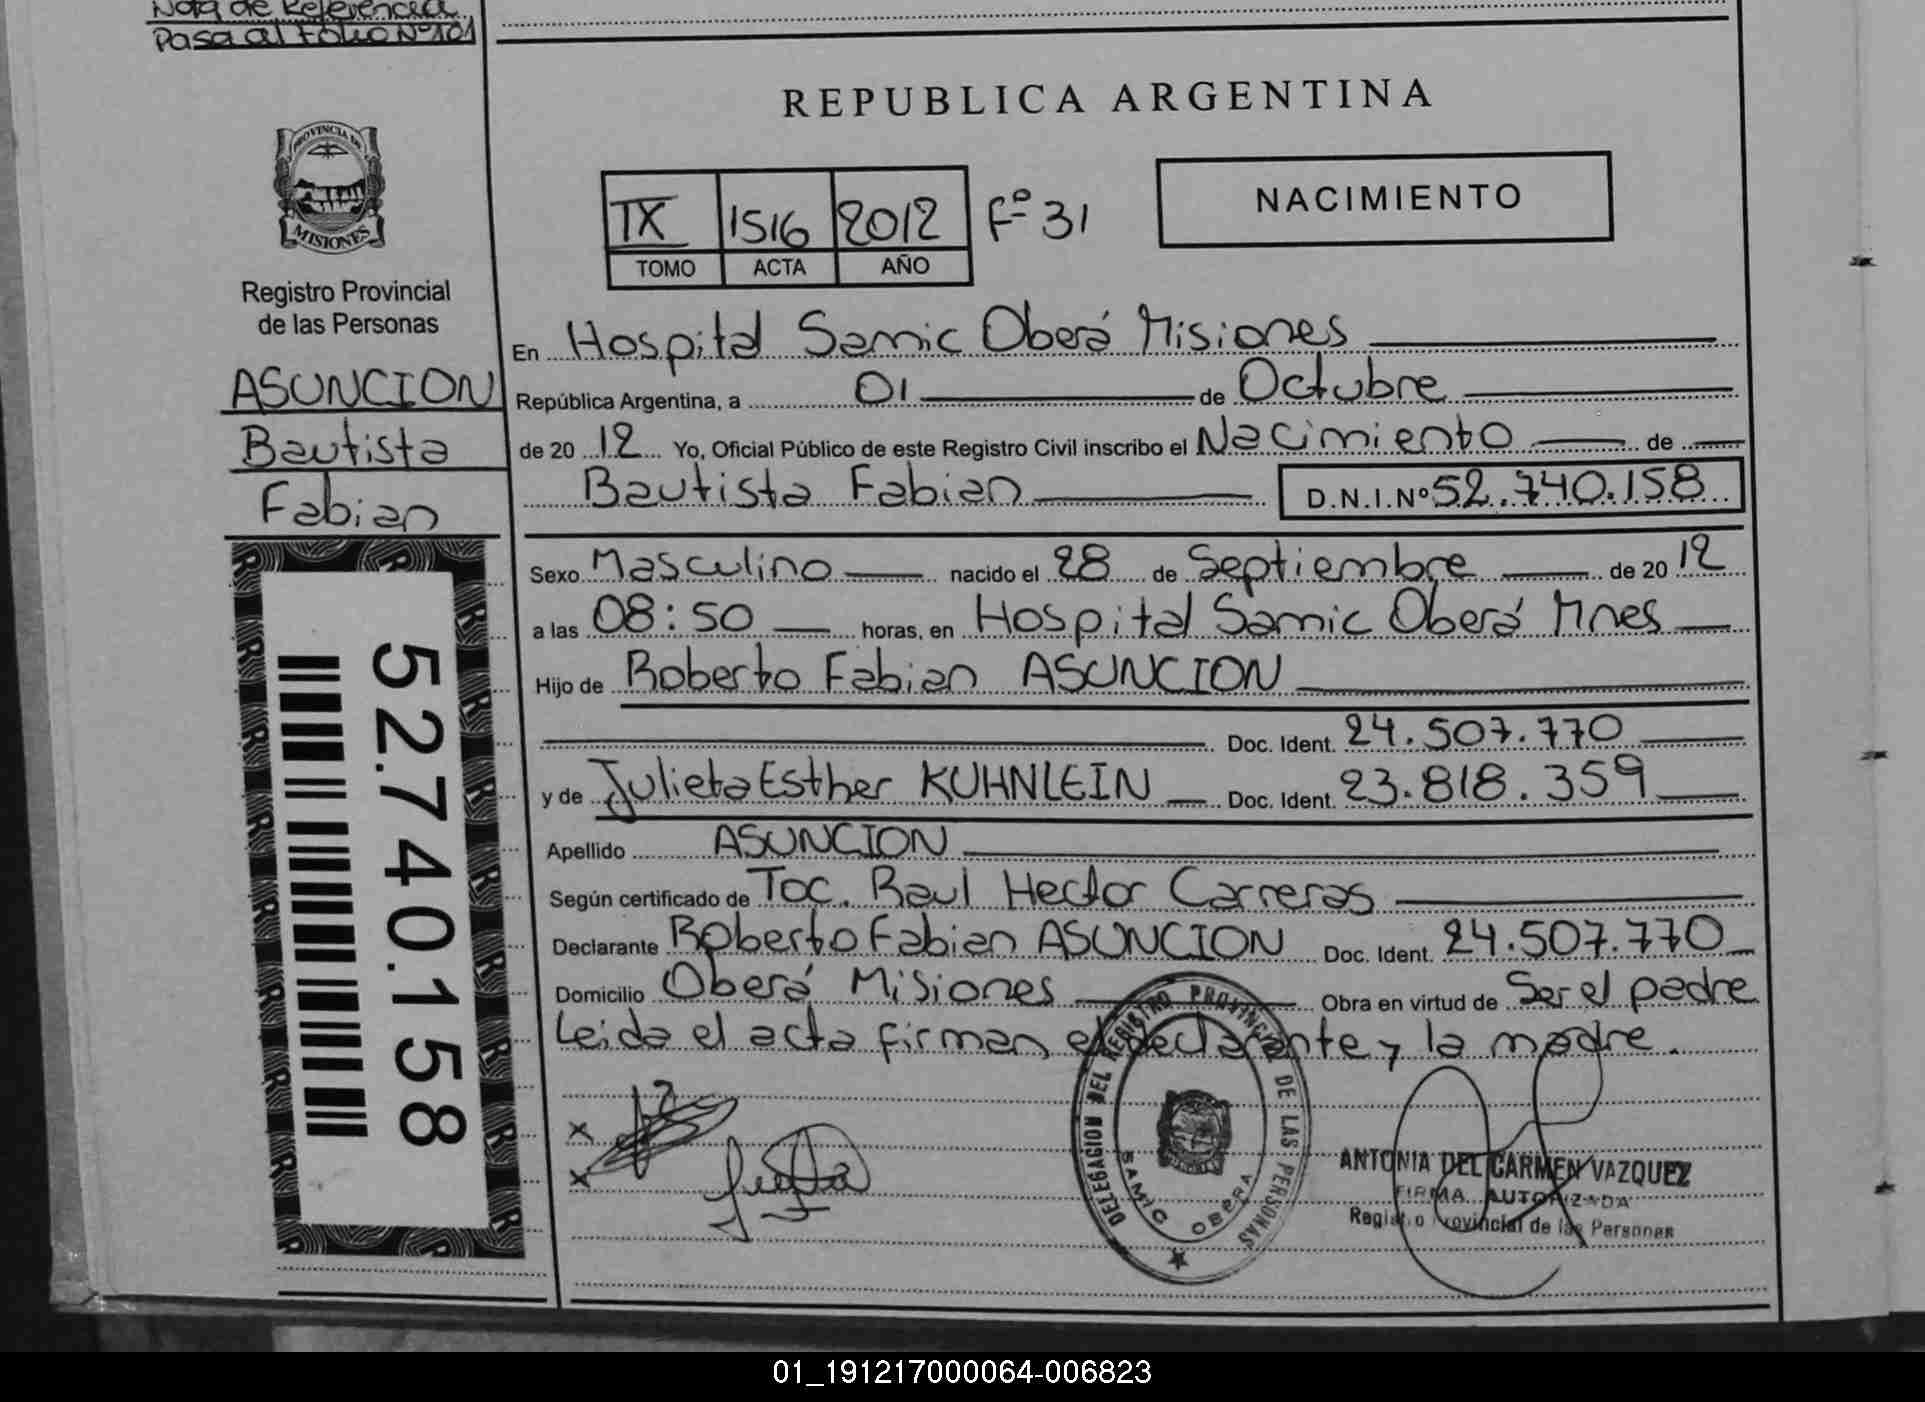 Nota de Referencia
Pasa al Folio Nº 101
PROVINCIA DE
MISIONES
Registro Provincial
de las Personas
ASUNCION
Bautista
Fabian
52.740.158
REPUBLICA ARGENTINA
IX 1516 2012 Fº 31
TOMO ACTA AÑO
NACIMIENTO
En Hospital Samic Oberá Misiones
República Argentina, a 01 de Octubre
de 20 12 Yo, Oficial Público de este Registro Civil inscribo el Nacimiento de
Bautista Fabian D.N.I.Nº 52.740.158
Sexo Masculino nacido el 28 de Septiembre de 20 12
a las 08:50 horas, en Hospital Samic Oberá Mnes
Hijo de Roberto Fabian ASUNCION
Doc. Ident. 24.507.770
y de Julieta Esther KUHNLEIN Doc. Ident. 23.818.359
Apellido ASUNCION
Según certificado de Toc. Raul Hector Carreras
Declarante Roberto Fabian ASUNCION Doc. Ident. 24.507.770
Domicilio Oberá Misiones Obra en virtud de Ser el padre
Leida el acta firman el declarante y la madre.
DELEGACION DEL REGISTRO PROVINCIAL DE LAS PERSONAS
SAMIC OBERA
ANTONIA DEL CARMEN VAZQUEZ
FIRMA AUTORIZADA
Registro Provincial de las Personas
01_191217000064-006823